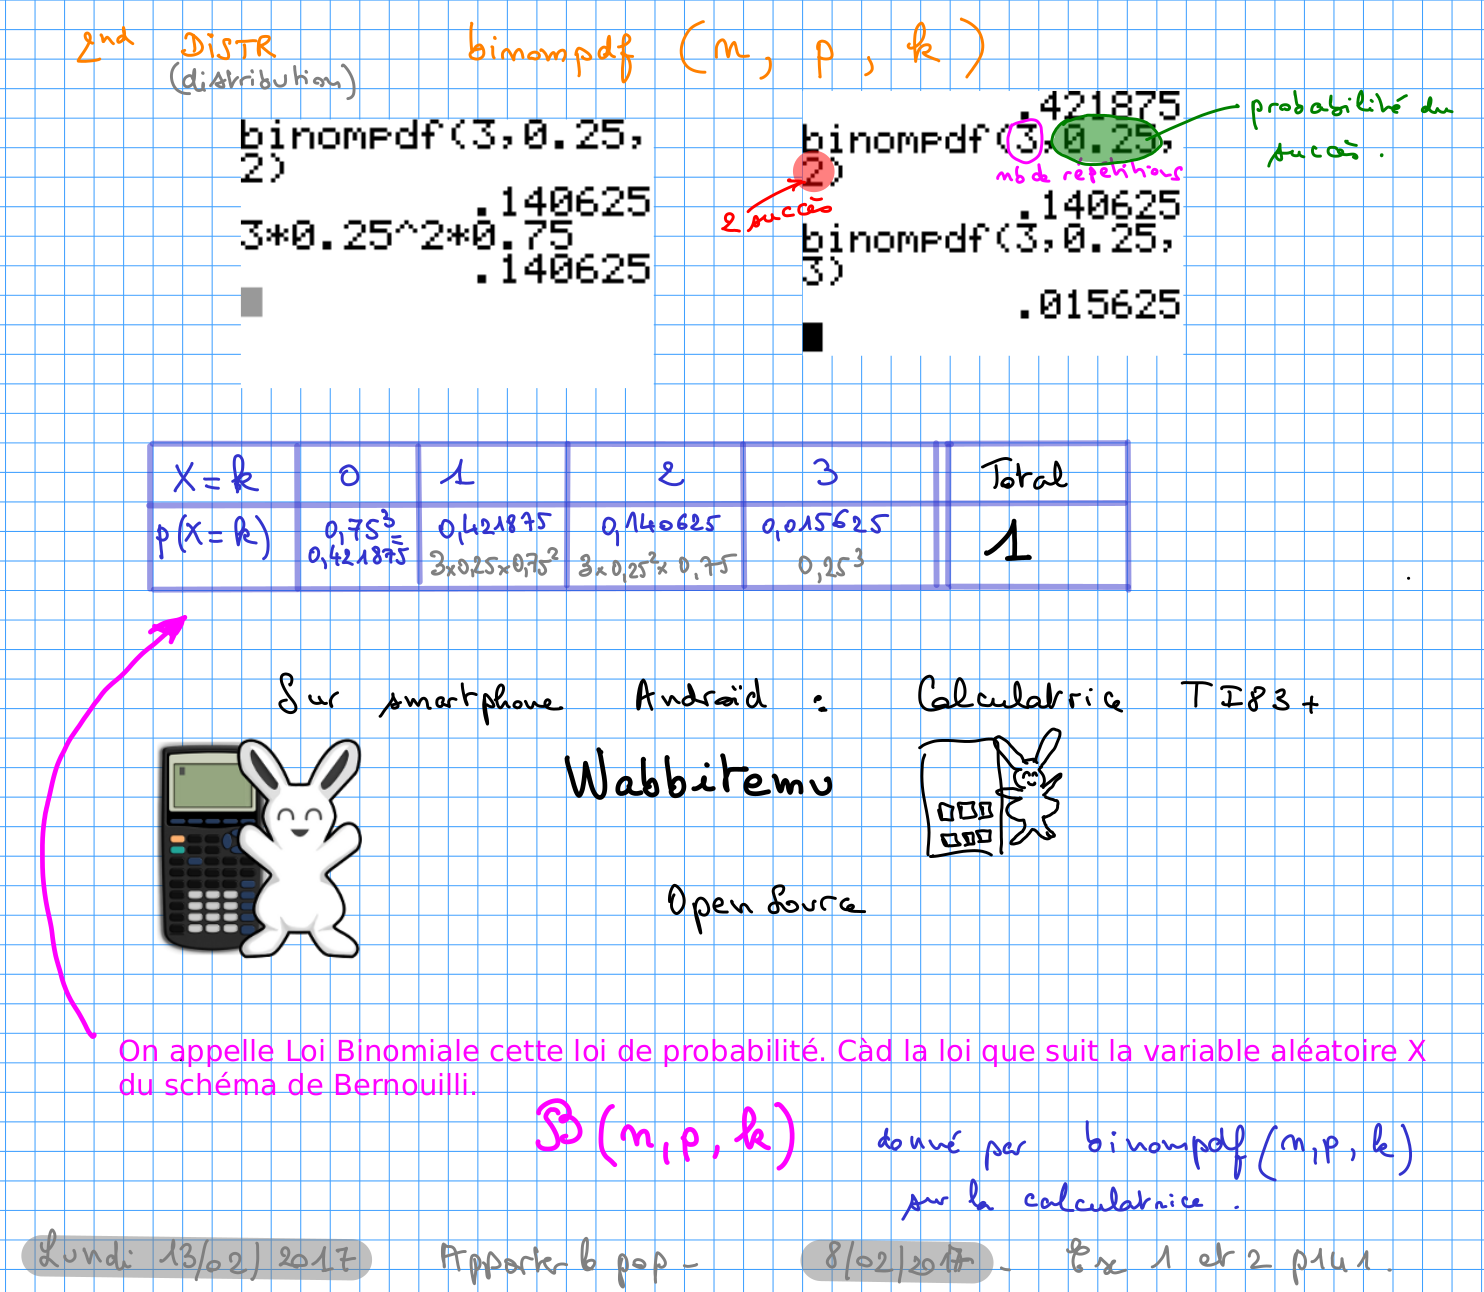 2nd DISTR binompdf (n, p, k)
(distribution)
binompdf(3,0.25,
2)
.140625
3*0.25^2*0.75
.140625
.421875
binompdf(3,0.25,
2)
.140625
binompdf(3,0.25,
3)
.015625
probabilité du
succès.
nb de répétitions
2 succès
X=k 0 1 2 3 Total
p(X=k) 0,75³= 0,421875 0,140625 0,015625 1
0,421875 3x0,25x0,75² 3x0,25²x 0,75 0,25³
Sur smartphone Androïd : Calculatrice TI83+
Wabbitemu
Open Source
On appelle Loi Binomiale cette loi de probabilité. Càd la loi que suit la variable aléatoire X
du schéma de Bernouilli.
B(n,p,k) donné par binompdf(n,p,k)
sur la calculatrice.
Lundi 13/02/2017 Apporter le pop - 8/02/2017 - Ex 1 et 2 p141.